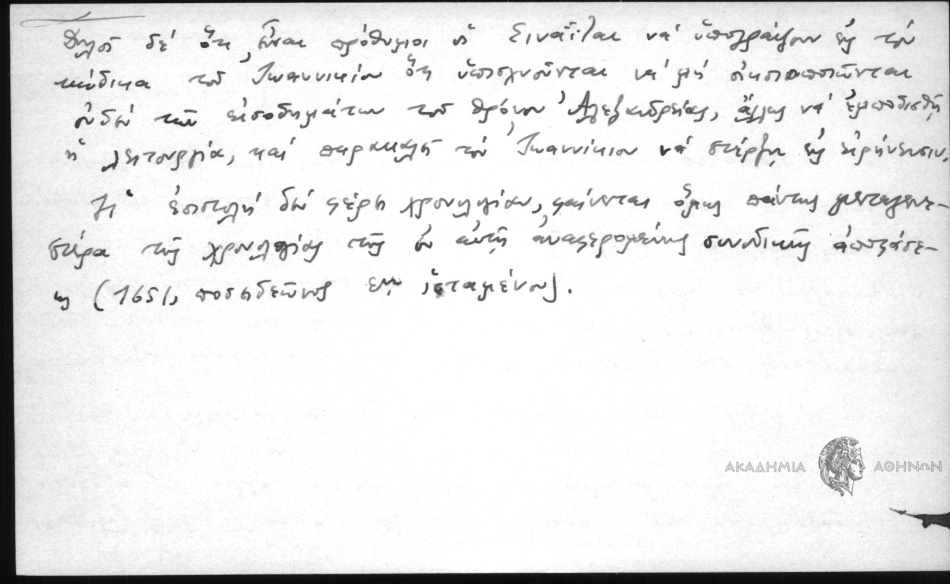 δηλοῖ δέ ὅτι εἶναι πρόθυμοι οἱ Σιναΐται νά ὑπογράψουν εἰς τόν
κώδικα τοῦ Ἰωαννικίου ὅτι ὑπισχνοῦνται νά μή
οὐδέν τῶν εἰσοδημάτων τοῦ θρόνου Ἀλεξανδρείας, ἄλλως νά ἐμποδισθῇ
ἡ λειτουργία, καί παρακαλεῖ τόν Ἰωαννίκιον νά στέρξῃ εἰς εἰρήνευσιν.
Ἡ ἐπιστολή δέν φέρει χρονολογίαν, φαίνεται ὅμως πάντως μεταγενε-
στέρα τῆς χρονολογίας τῆς ἐν αὐτῇ ἀναφερομένης συνοδικῆς ἀποφάσε-
ως (1651, ποσειδεῶνος ἱσταμένου).
ΑΚΑΔΗΜΙΑ ΑΘΗΝΩΝ